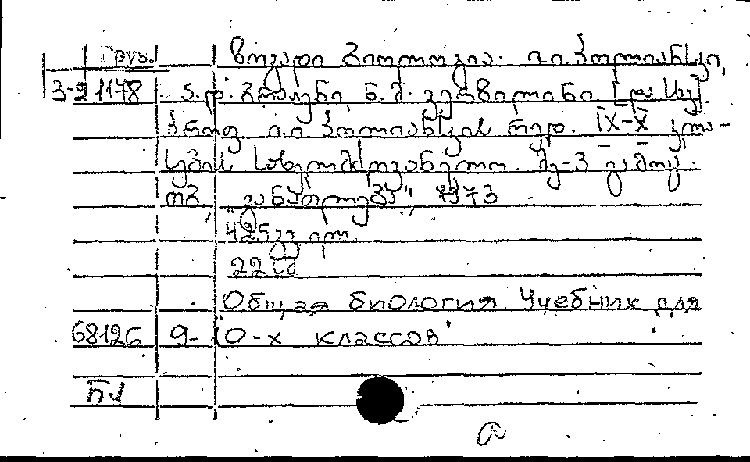 Груз. ზოგადი ბიოლოგია. ი.ი. პოლიანსკი,
3-2 1178 ა.დ. ბრაუნი, ნ.მ. ვერზილინი [და სხვ].
პროფ. ი.ი პოლიანსკის რედ. IX-X კლა-
სების სახელმძღვანელო მე-3 გამოც.
თბ., "განათლება", 1973
425გვ ილ.
22სმ
Общая биология Учебник для
68126 9-10-х классов
Б1